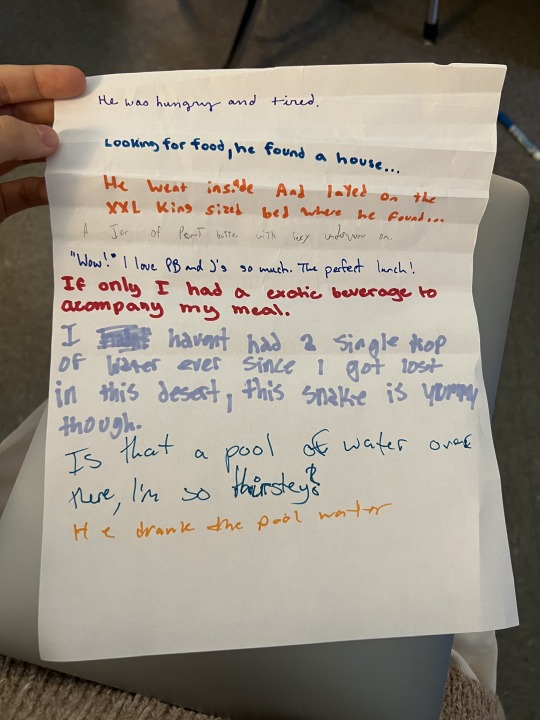 He was hungry and tired.
Looking for food, he found a house...
He went inside And layed on the
XXL King sized bed where he found...
A Jar of Penut butter with lacy underwear on.
"Wow!" I love PB and J's so much. The perfect lunch!
If only I had a exotic beverage to
acompany my meal.
I havent had a single drop
of water ever since I got lost
in this desert, this snake is yummy
though.
Is that a pool of water over
there, I'm so thairstey?
He drank the pool water